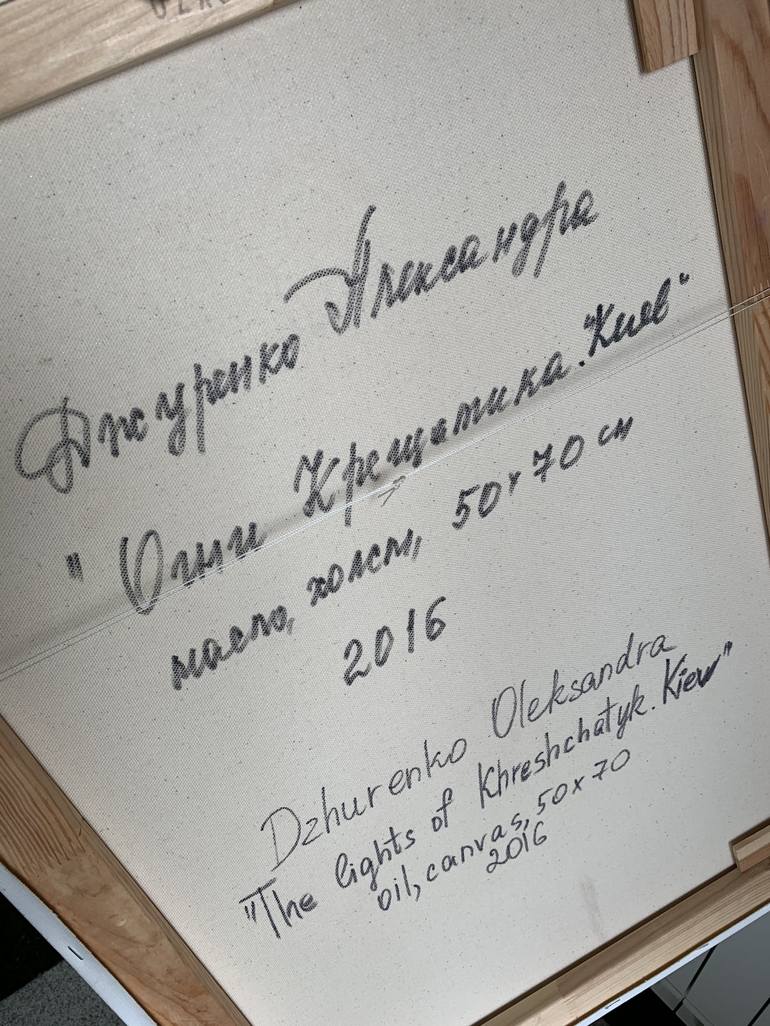 Джуренко Александра
"Огни Крещатика. Киев"
масло, холст, 50x70 см
2016
Dzhurenko Oleksandra
"The lights of Khreshchatyk. Kiev"
oil, canvas, 50x70
2016